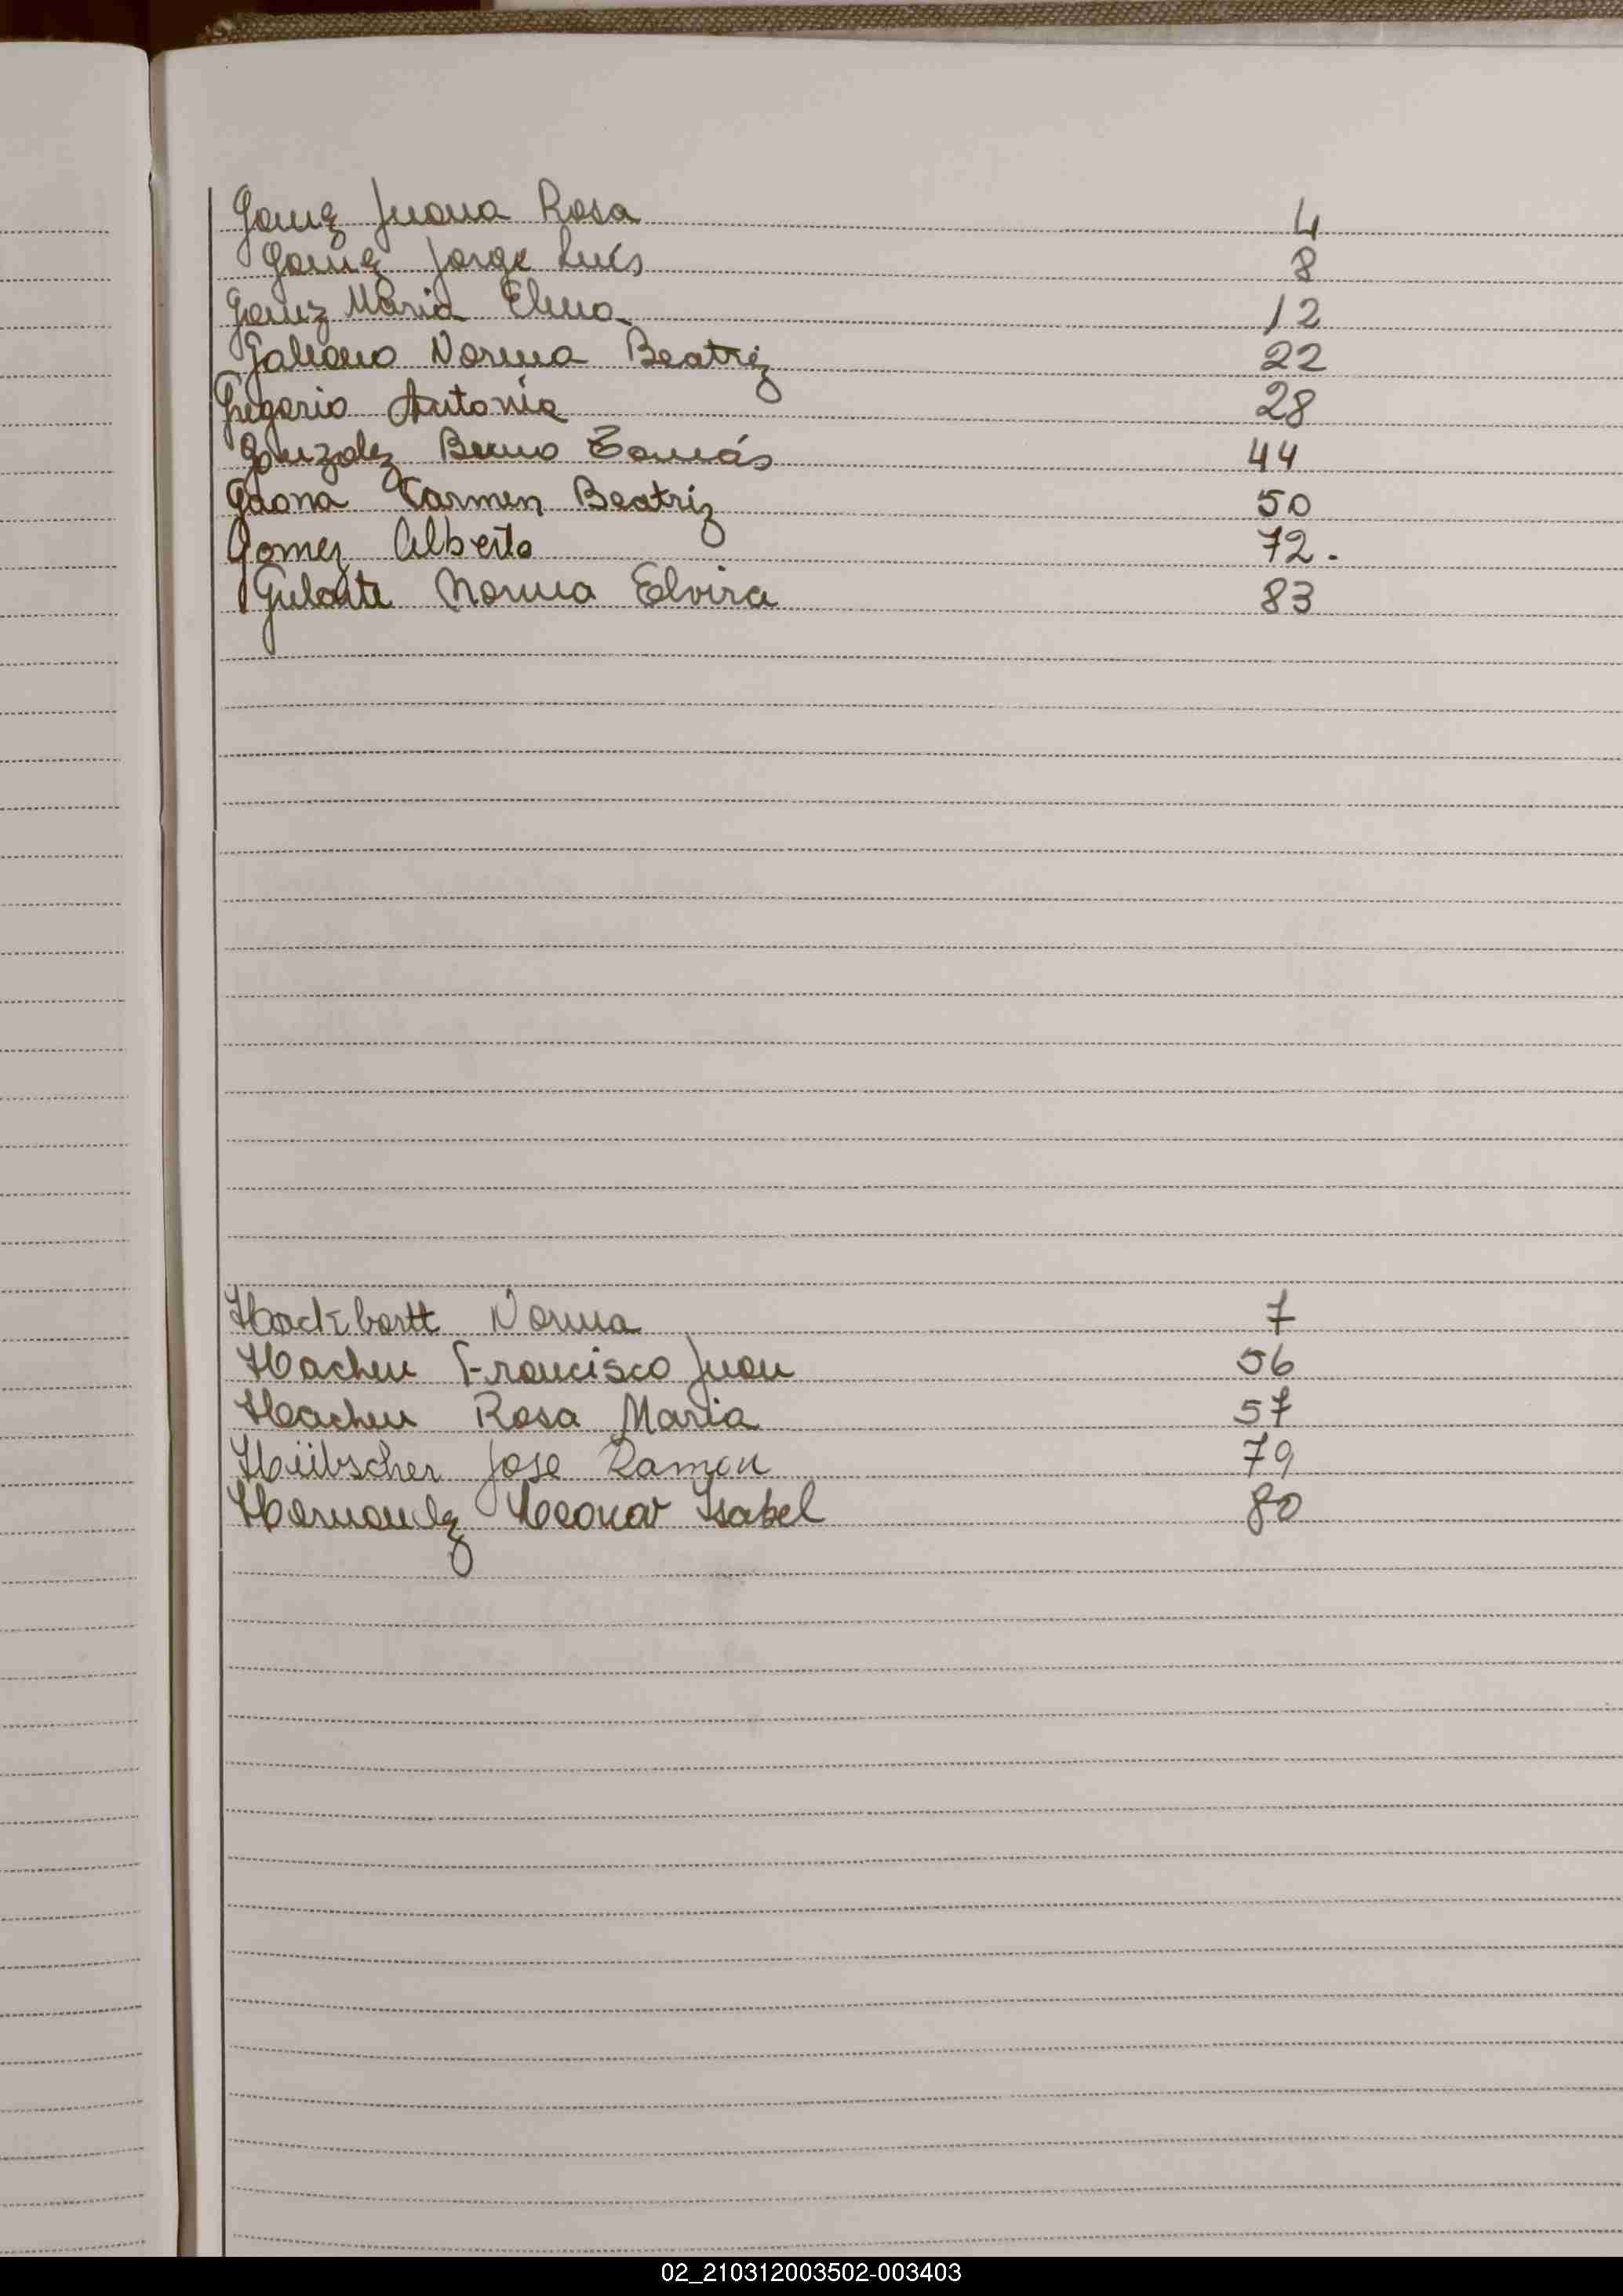 Gomez Juana Rosa 4
Gomez Jorge Luis 8
Gomez Maria Elena 12
Galeano Norma Beatriz 22
Gregorio Antonia 28
Gonzalez Tomás 44
Gaona Carmen Beatriz 50
Gomez Alberto 72.
Gularte Norma Elvira 83
Hackbartt Norma 7
Hachen Francisco Juan 56
Hachen Rosa Maria 57
Hübscher Jose Ramon 79
Leonor Isabel 80
02_210312003502-003403